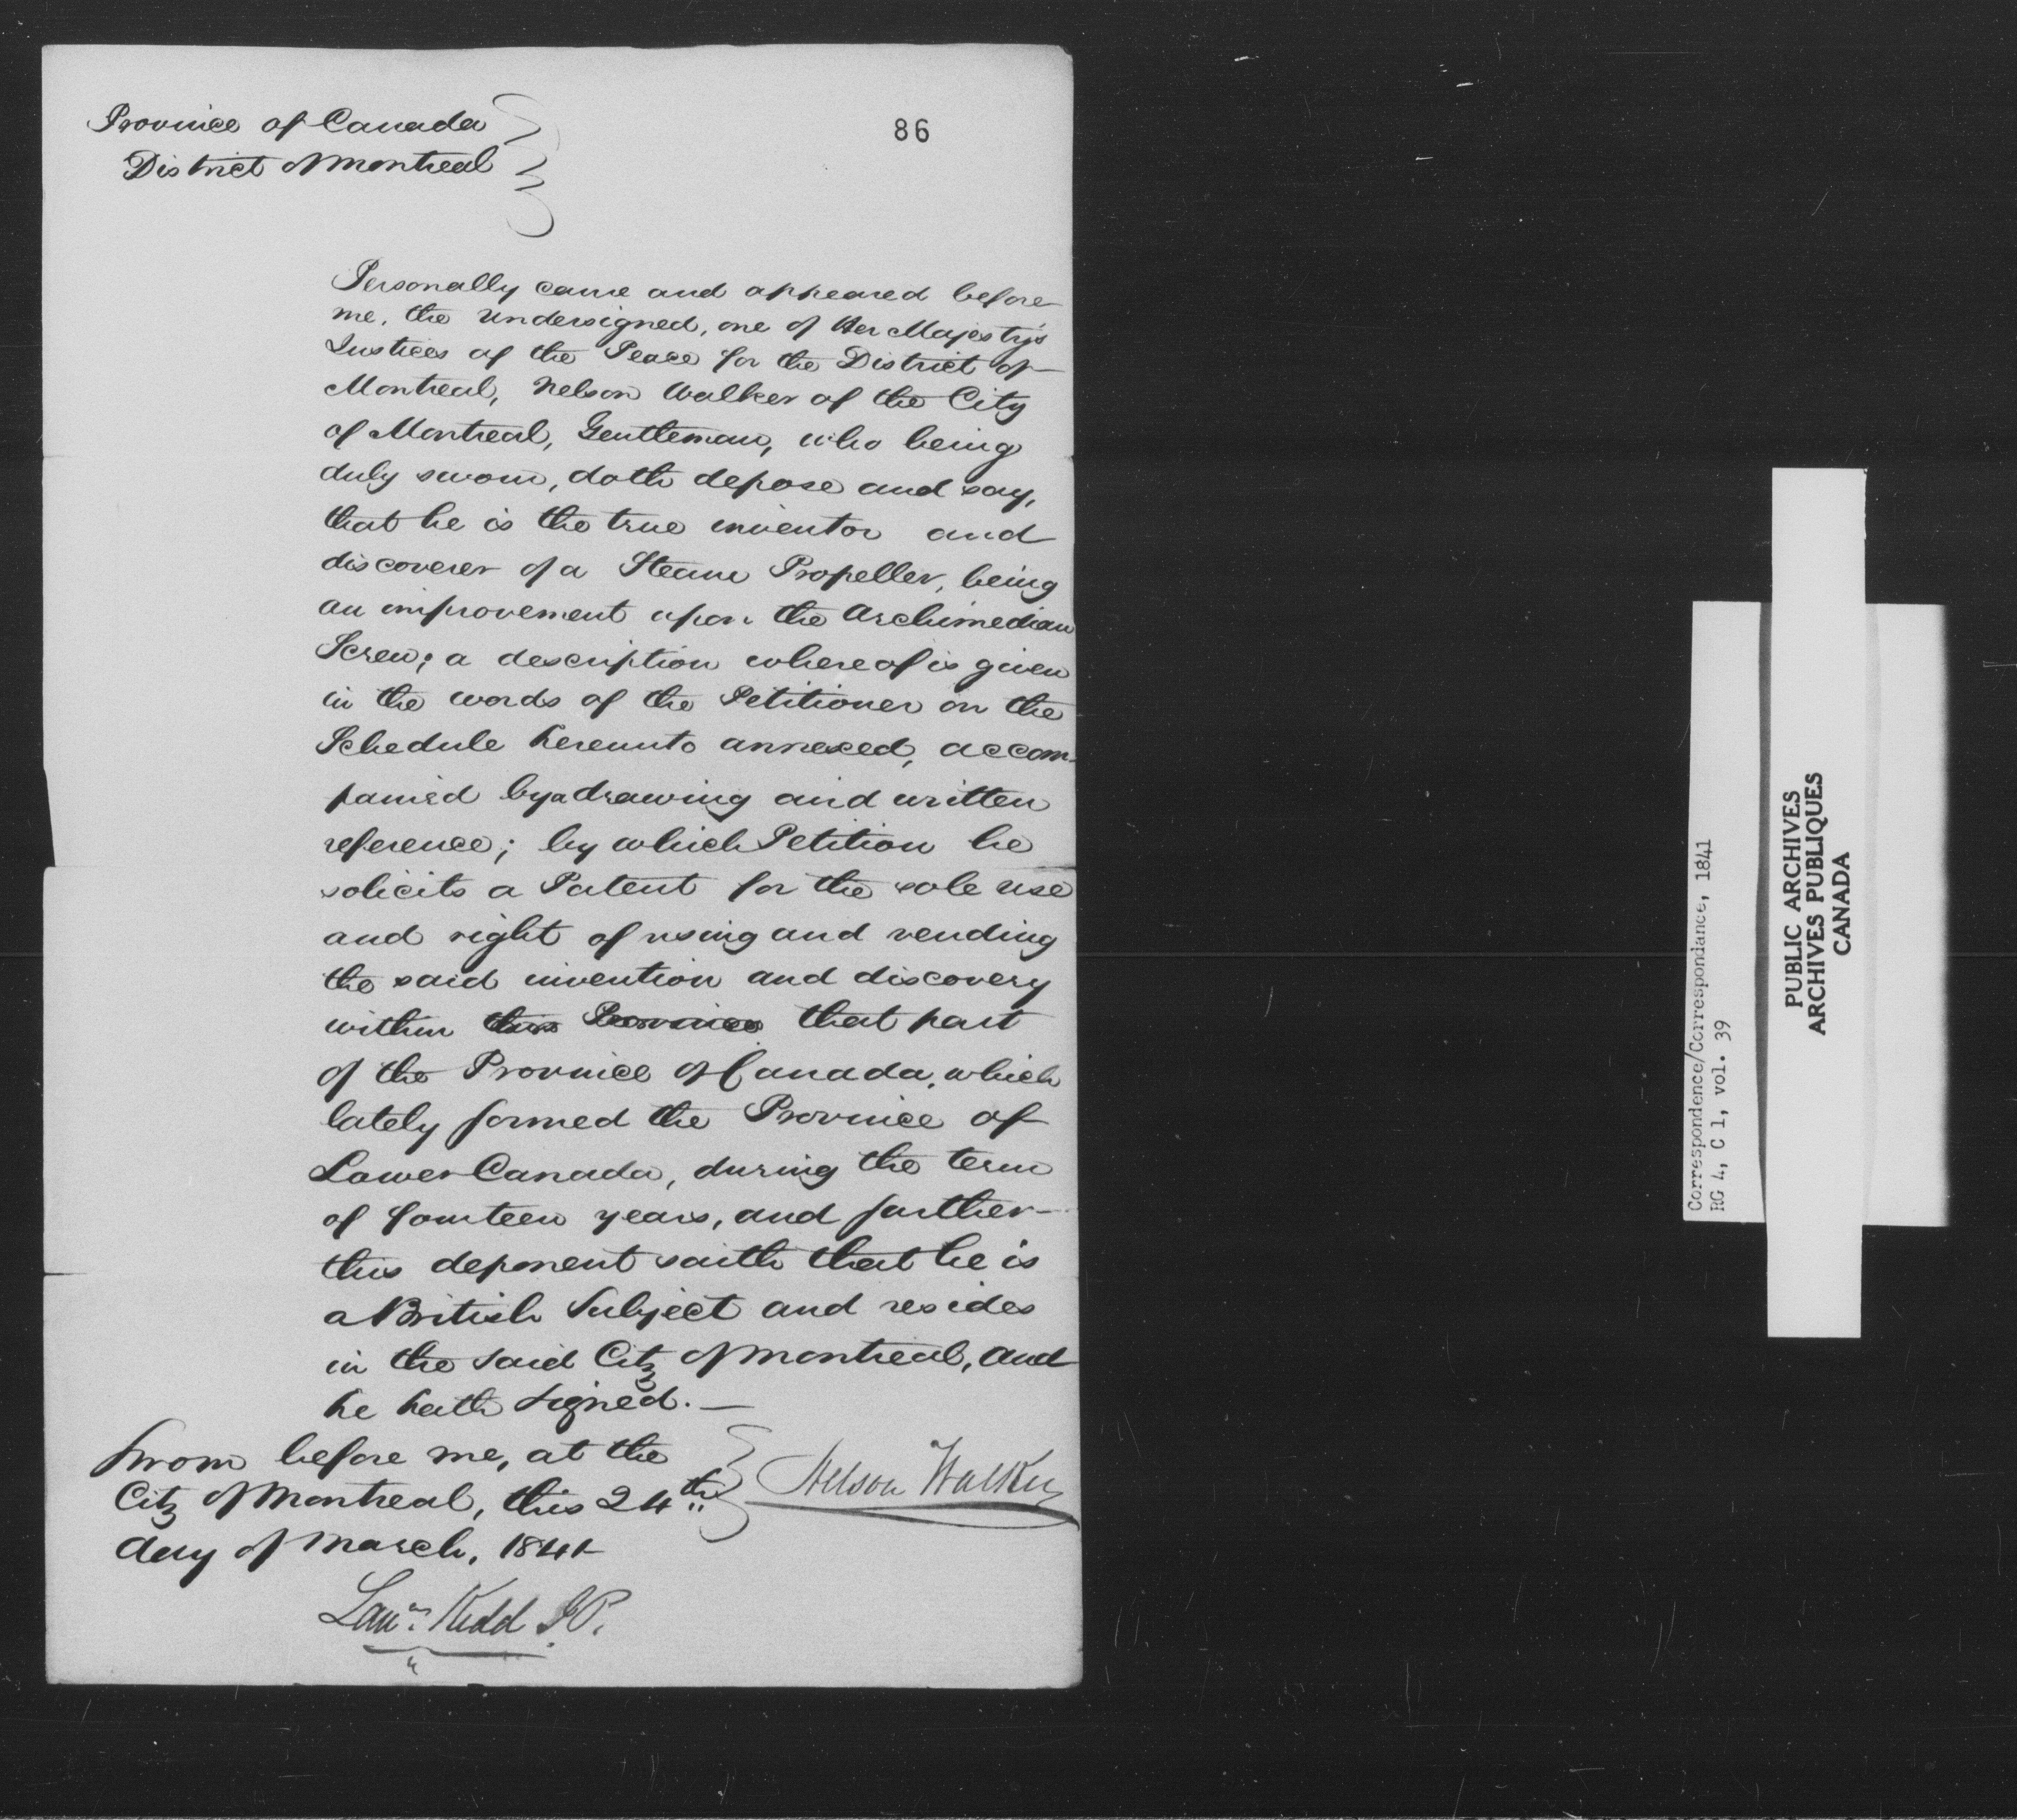 Province of Canada
District of Montreal
86
Personally came and appeared before
me, the Undersigned, one of Her Majesty's
Justices of the Peace for the District of
Montreal, Nelson Walker of the City
of Montreal, Gentleman, who being
duly sworn, doth depose and say,
that he is the true inventor and
discoverer of a Steam Propeller, being
an improvement upon the Archimedian
Screw; a description whereof is given
in the words of the Petitioner on the
Schedule hereunto annexed, accom-
panied by a drawing and written
reference; by which Petition he
solicits a Patent for the sole use
and right of using and vending
the said invention and discovery
within this Province that part
of the Province of Canada, which
lately formed the Province of
Lower Canada, during the term
of fourteen years, and further
this deponent saith that he is
a British Subject and resides
in the said City of Montreal, and
he hath signed. —
Sworn before me, at the
City of Montreal, this 24th
day of March, 1841
Nelson Walker
Lawce Kidd J.P.
Correspondence/Correspondance, 1841
RG 4, C 1, vol. 39
PUBLIC ARCHIVES
ARCHIVES PUBLIQUES
CANADA